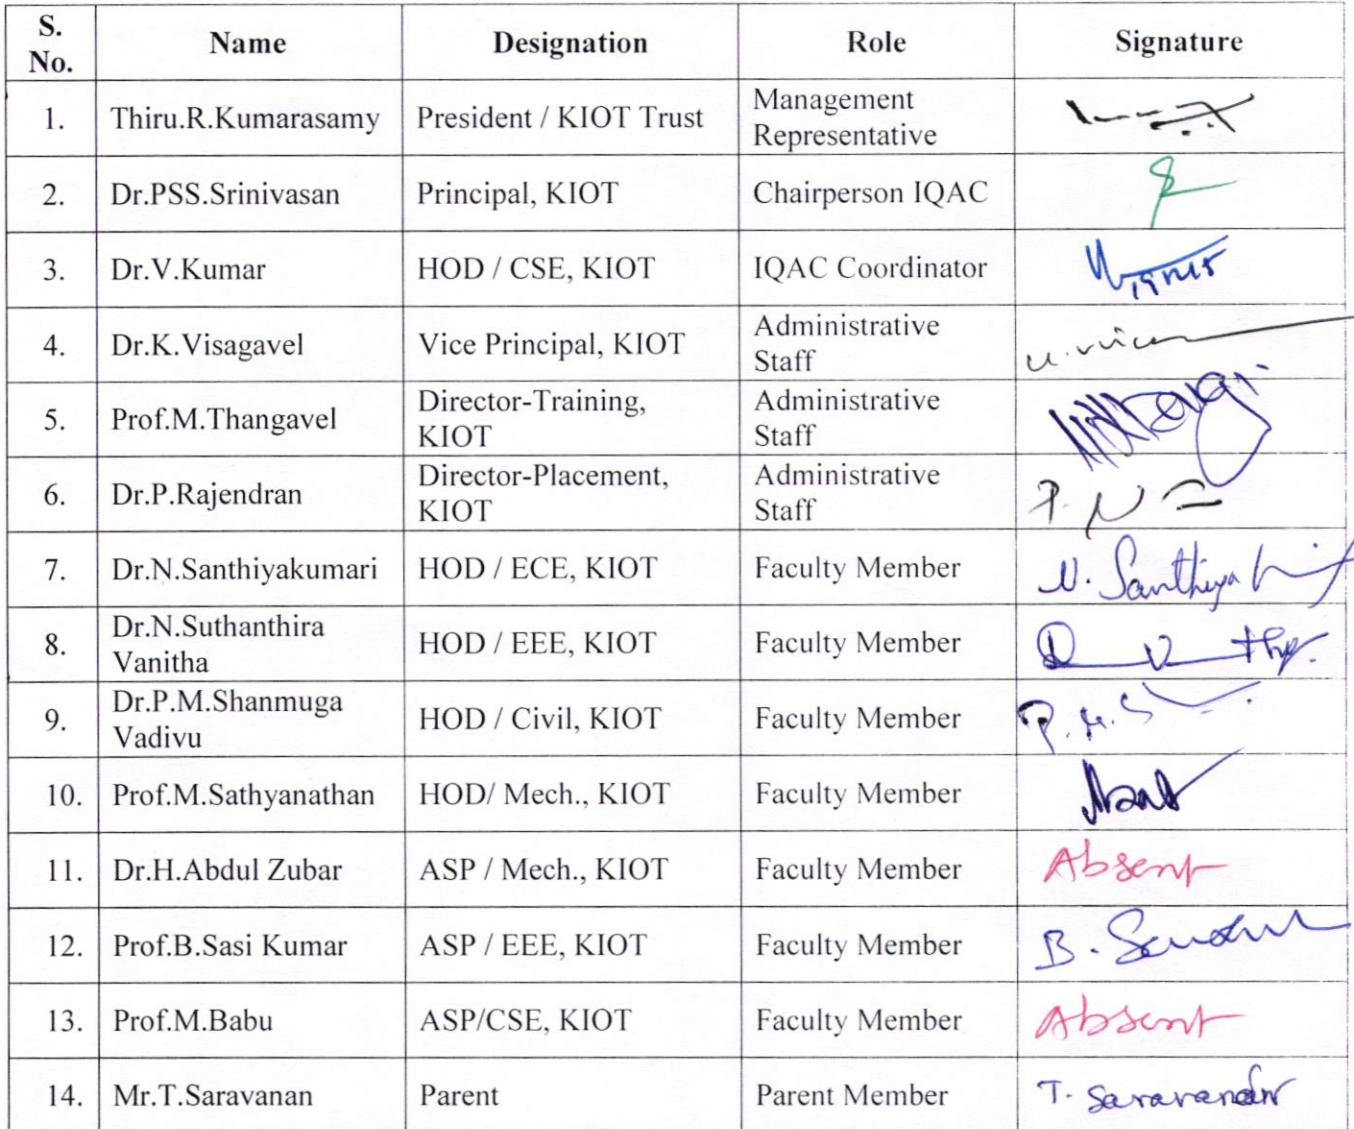 S. No. Name Designation Role Signature
1. Thiru.R.Kumarasamy President / KIOT Trust Management Representative
2. Dr.PSS.Srinivasan Principal, KIOT Chairperson IQAC
3. Dr.V.Kumar HOD / CSE, KIOT IQAC Coordinator
4. Dr.K.Visagavel Vice Principal, KIOT Administrative Staff
5. Prof.M.Thangavel Director-Training, KIOT Administrative Staff
6. Dr.P.Rajendran Director-Placement, KIOT Administrative Staff
7. Dr.N.Santhiyakumari HOD / ECE, KIOT Faculty Member N. Santhiya
8. Dr.N.Suthanthira Vanitha HOD / EEE, KIOT Faculty Member
9. Dr.P.M.Shanmuga Vadivu HOD / Civil, KIOT Faculty Member P.M.S
10. Prof.M.Sathyanathan HOD/ Mech., KIOT Faculty Member
11. Dr.H.Abdul Zubar ASP / Mech., KIOT Faculty Member Absent
12. Prof.B.Sasi Kumar ASP / EEE, KIOT Faculty Member B.
13. Prof.M.Babu ASP/CSE, KIOT Faculty Member Absent
14. Mr.T.Saravanan Parent Parent Member T. Saravanan